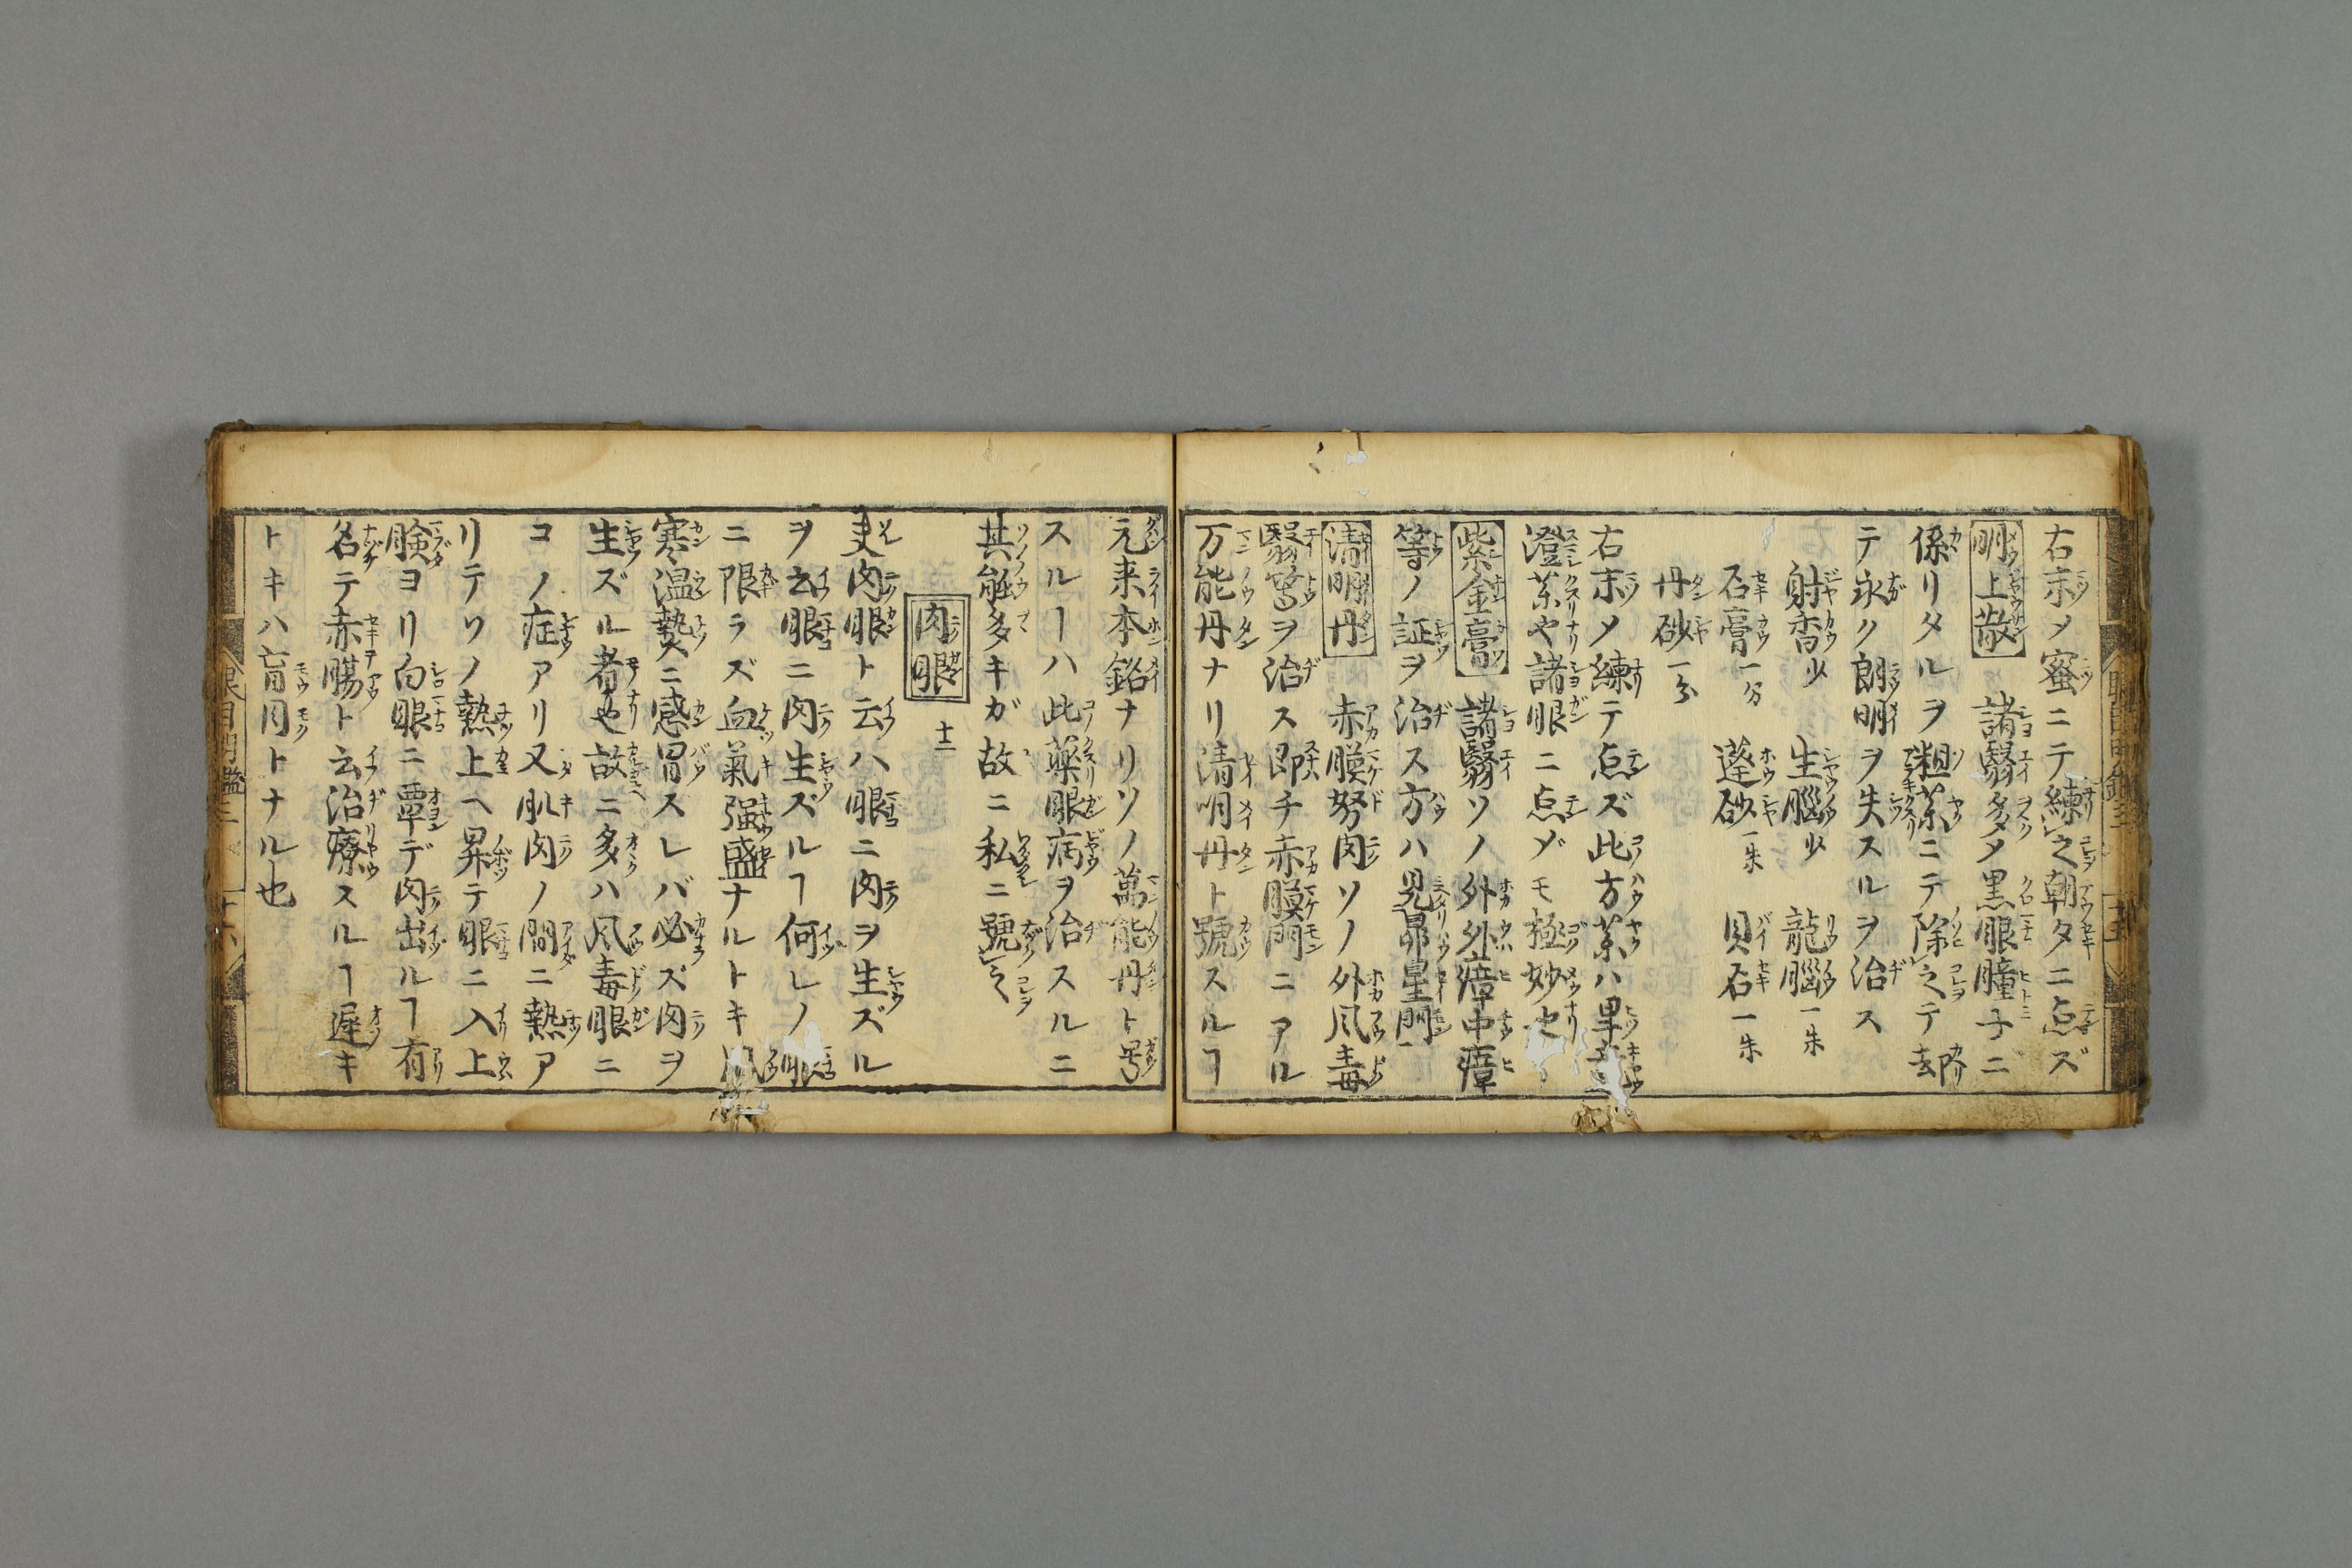 右末〆蜜ニテ練之朝夕ニ点ズ
明上散 諸翳多〆黒眼瞳子ニ
係リタルヲ粗薬ニテ除之テ去
テ永ク朗明ヲ失スルヲ治ス
射香少 生腦少 龍腦一朱
石膏一分 蓬砂一朱 貝石一朱
丹砂一分
右末〆練テ点ズ此方薬ハ畢竟
澄薬や諸眼ニ点ヅモ極妙也
紫金膏 諸翳ソノ外外障中障
等ノ証ヲ治ス方ハ見昴星門
清明丹 赤膜努肉ソノ外風毒
翳等ヲ治ス即チ赤膜門ニアル
万能丹ナリ清明丹ト號スルヿ
元来本銘ナリソノ萬能丹ト号
スルヿハ此藥眼病ヲ治スルニ
其能多キガ故ニ私ニ號之
肉眼 十二
夫肉眼ト云ハ眼ニ肉ヲ生ズル
ヲ云眼ニ肉生ズルヿ何レノ眼
ニ限ラズ血氣强盛ナルトキ風
寒温熱ニ感冒スレバ必ズ肉ヲ
生ズル者也故ニ多ハ风毒眼ニ
コノ症アリ又肌肉ノ間ニ熱ア
リテソノ熱上ヘ昇テ眼ニ入上
瞼ヨリ白眼ニ覃デ肉出ルヿ有
名テ赤膓ト云治療スルヿ遲キ
トキハ盲目トナル也